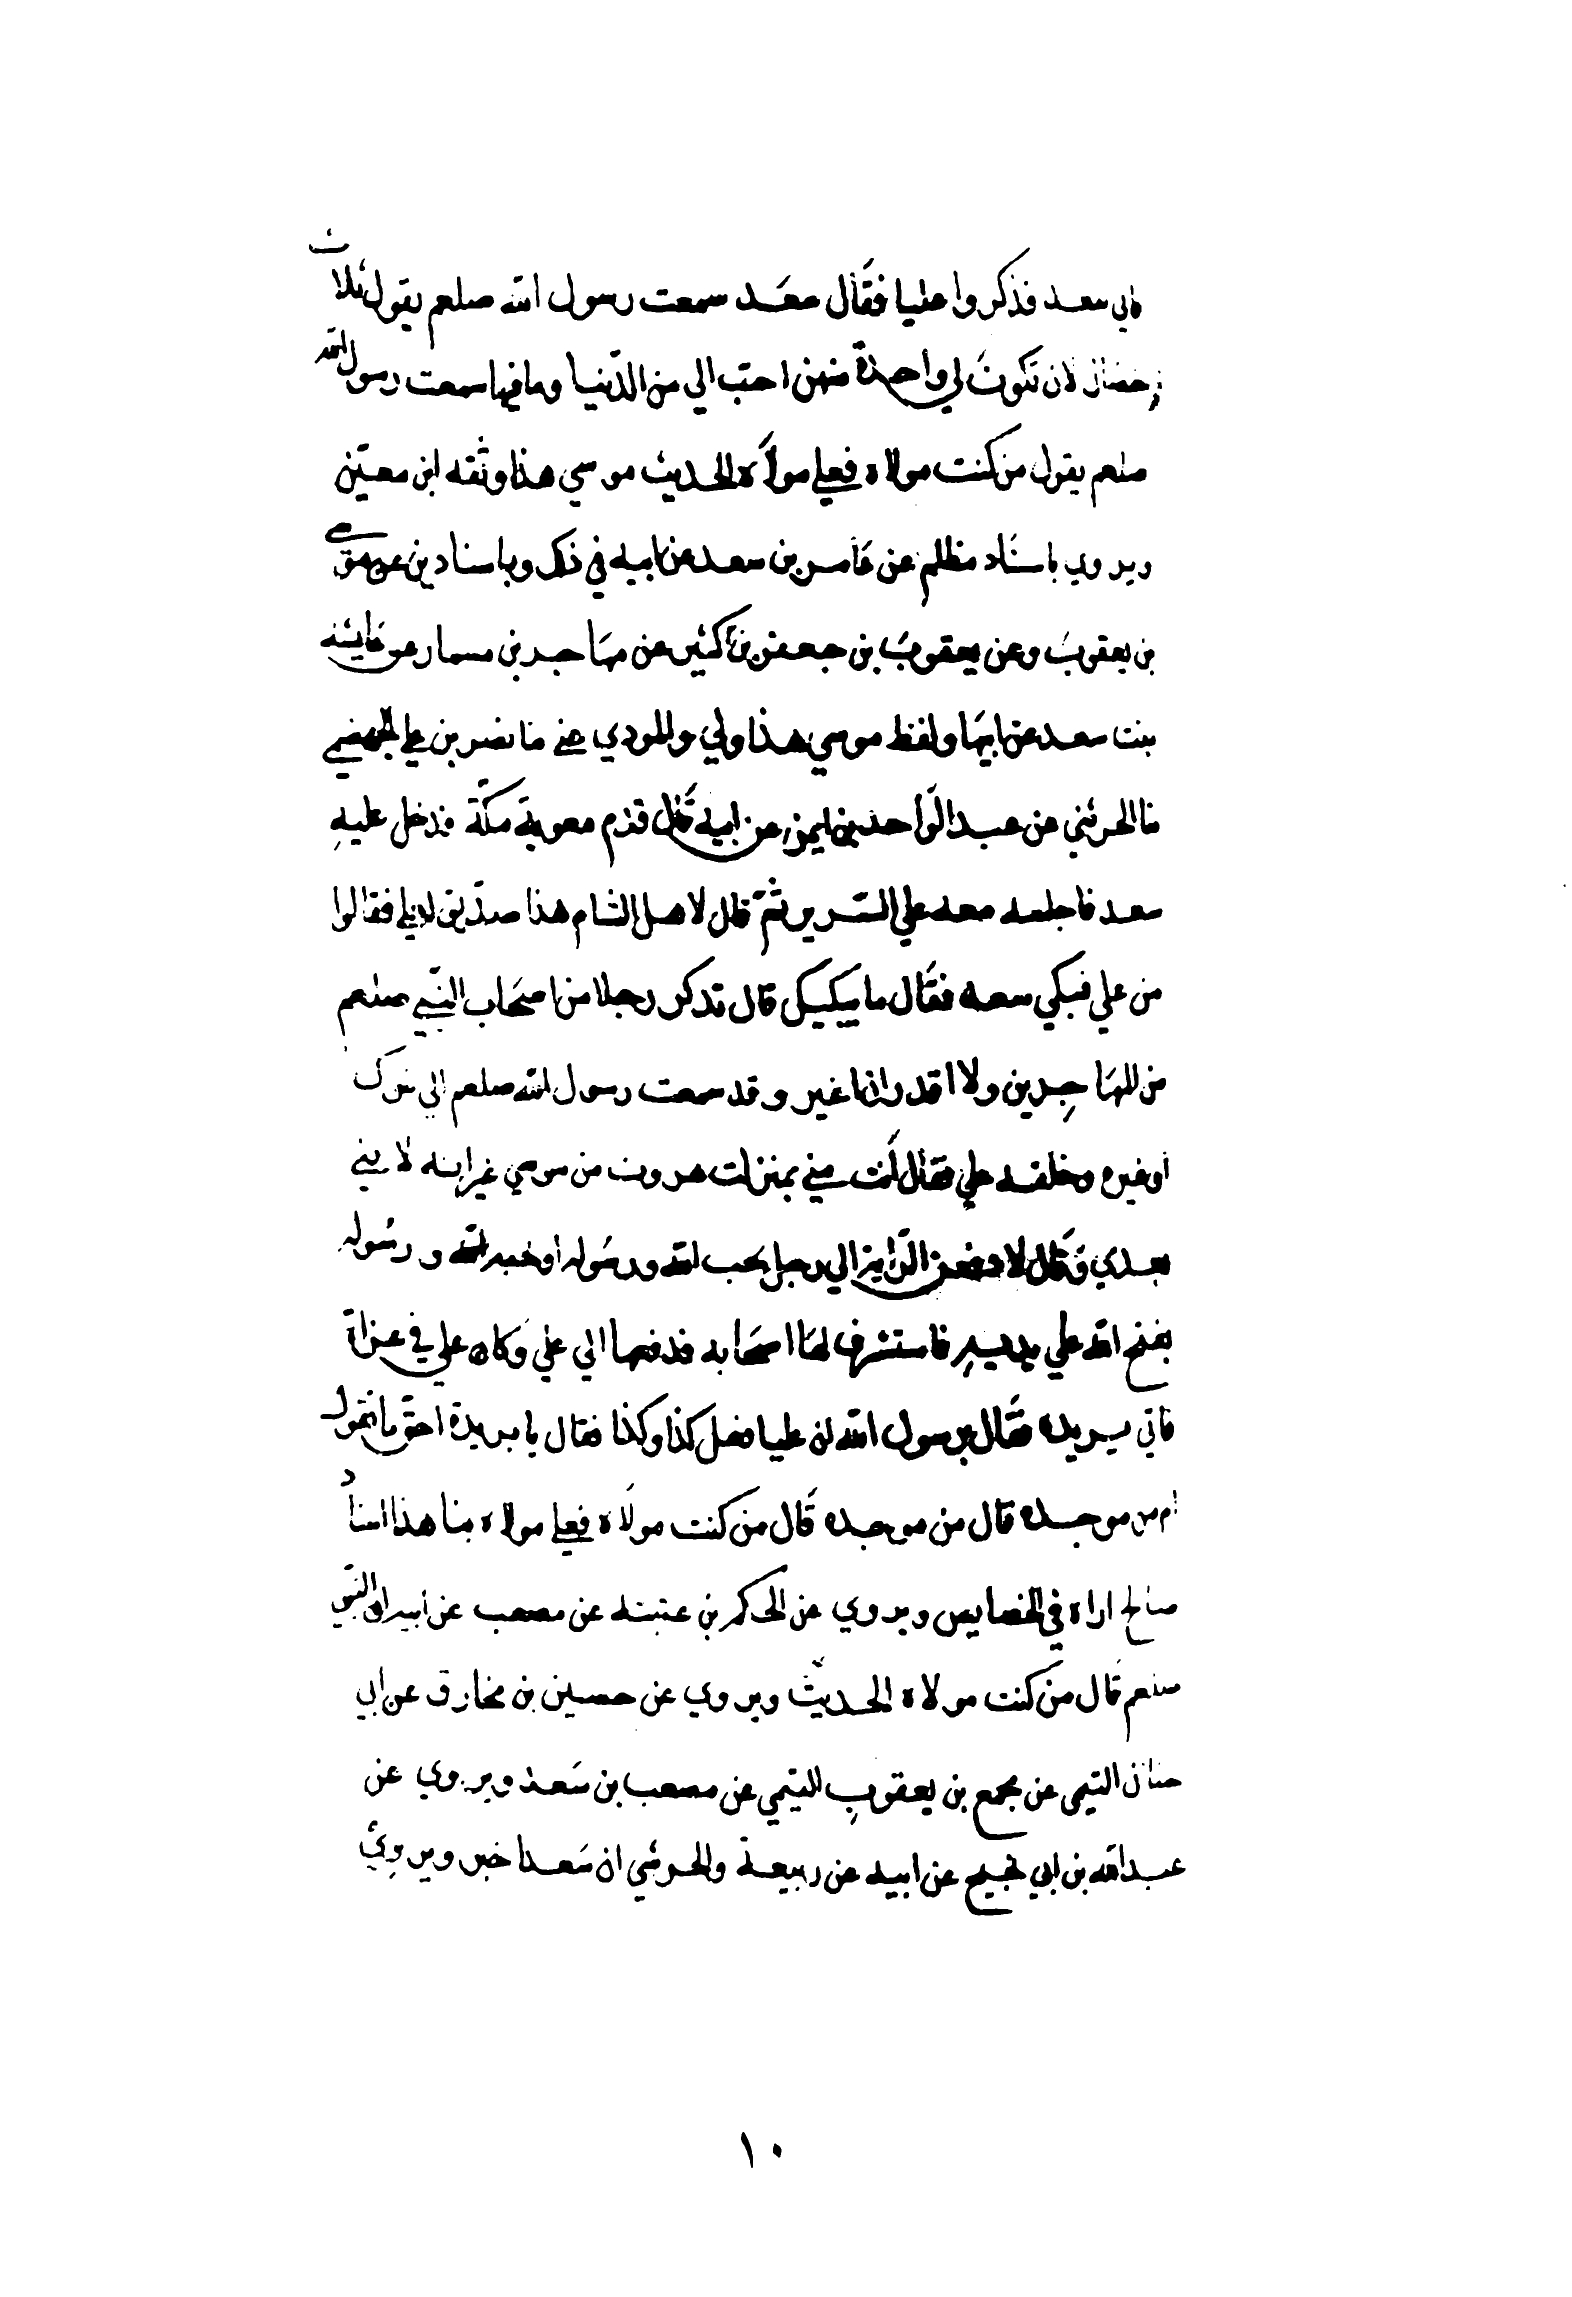 فاتي سعد فذكروا عليا فقال سعد سمعت رسول الله صلعم يقول ثلاث
خصال لان تكون لي واحدة منهن احب الي من الدنيا وما فيها سمعت رسول الله
صلعم يقول من كنت مولاه فعلي مولاه الحديث موسي هذا وثقه ابن معين
ويروي باسناد مظلم عن عامر بن سعد عن ابيه في ذلك وباسنادين عن موسي
بن يعقوب وعن يعقوب بن جعفر بن كثير عن مهاجر بن مسمار عن عايشه
بنت سعد عن ابيها ولفظ موسي هذا ولي والمودي عني نا نصر بن علي الجهضمي
نا الحرشي عن عبد الواحد بن ايمن عن ابيه قال قدم معوية مكة فدخل عليه
سعد فاجلسه معه علي السرير ثم قال لاهل الشام هذا صديق لعلي فقالوا
من علي فبكي سعد فقال ما يبكيك قال تذكر رجلا من اصحاب النبي صلعم
من المهاجرين ولا اقدر ان اغير وقد سمعت رسول الله صلعم الي تبوك
او غيره وخلفه علي فقال انت مني بمنزلت هرون من موسي غير انه لا نبي
بعدي وقال لادفعن الراية الي رجل يحب الله ورسوله او يحبه الله ورسوله
يفتح الله علي يديه فاستشرف لها اصحابه فدفعها الي علي وكان علي في غزاة
فاتي بريده فقال يرسول الله ان عليا فعل كذا وكذا فقال يا بريدة احق ما تقول
ام من موجده قال من موجده قال من كنت مولاه فعلي مولاه هذا اسناد
صالح اراه في الخصايص ويروي عن الحكم بن عتبه عن مصعب عن ابيه ان النبي
صلعم قال من كنت مولاه الحديث ويروي عن حصين بن مخارق عن ابي
حنان التيمي عن مجمع بن يعقوب التيمي عن مصعب بن سعد ويروي عن
عبد الله بن ابي نجيح عن ابيه عن ربيعة والحرشي ان سعدا خبر ويروي
١٠